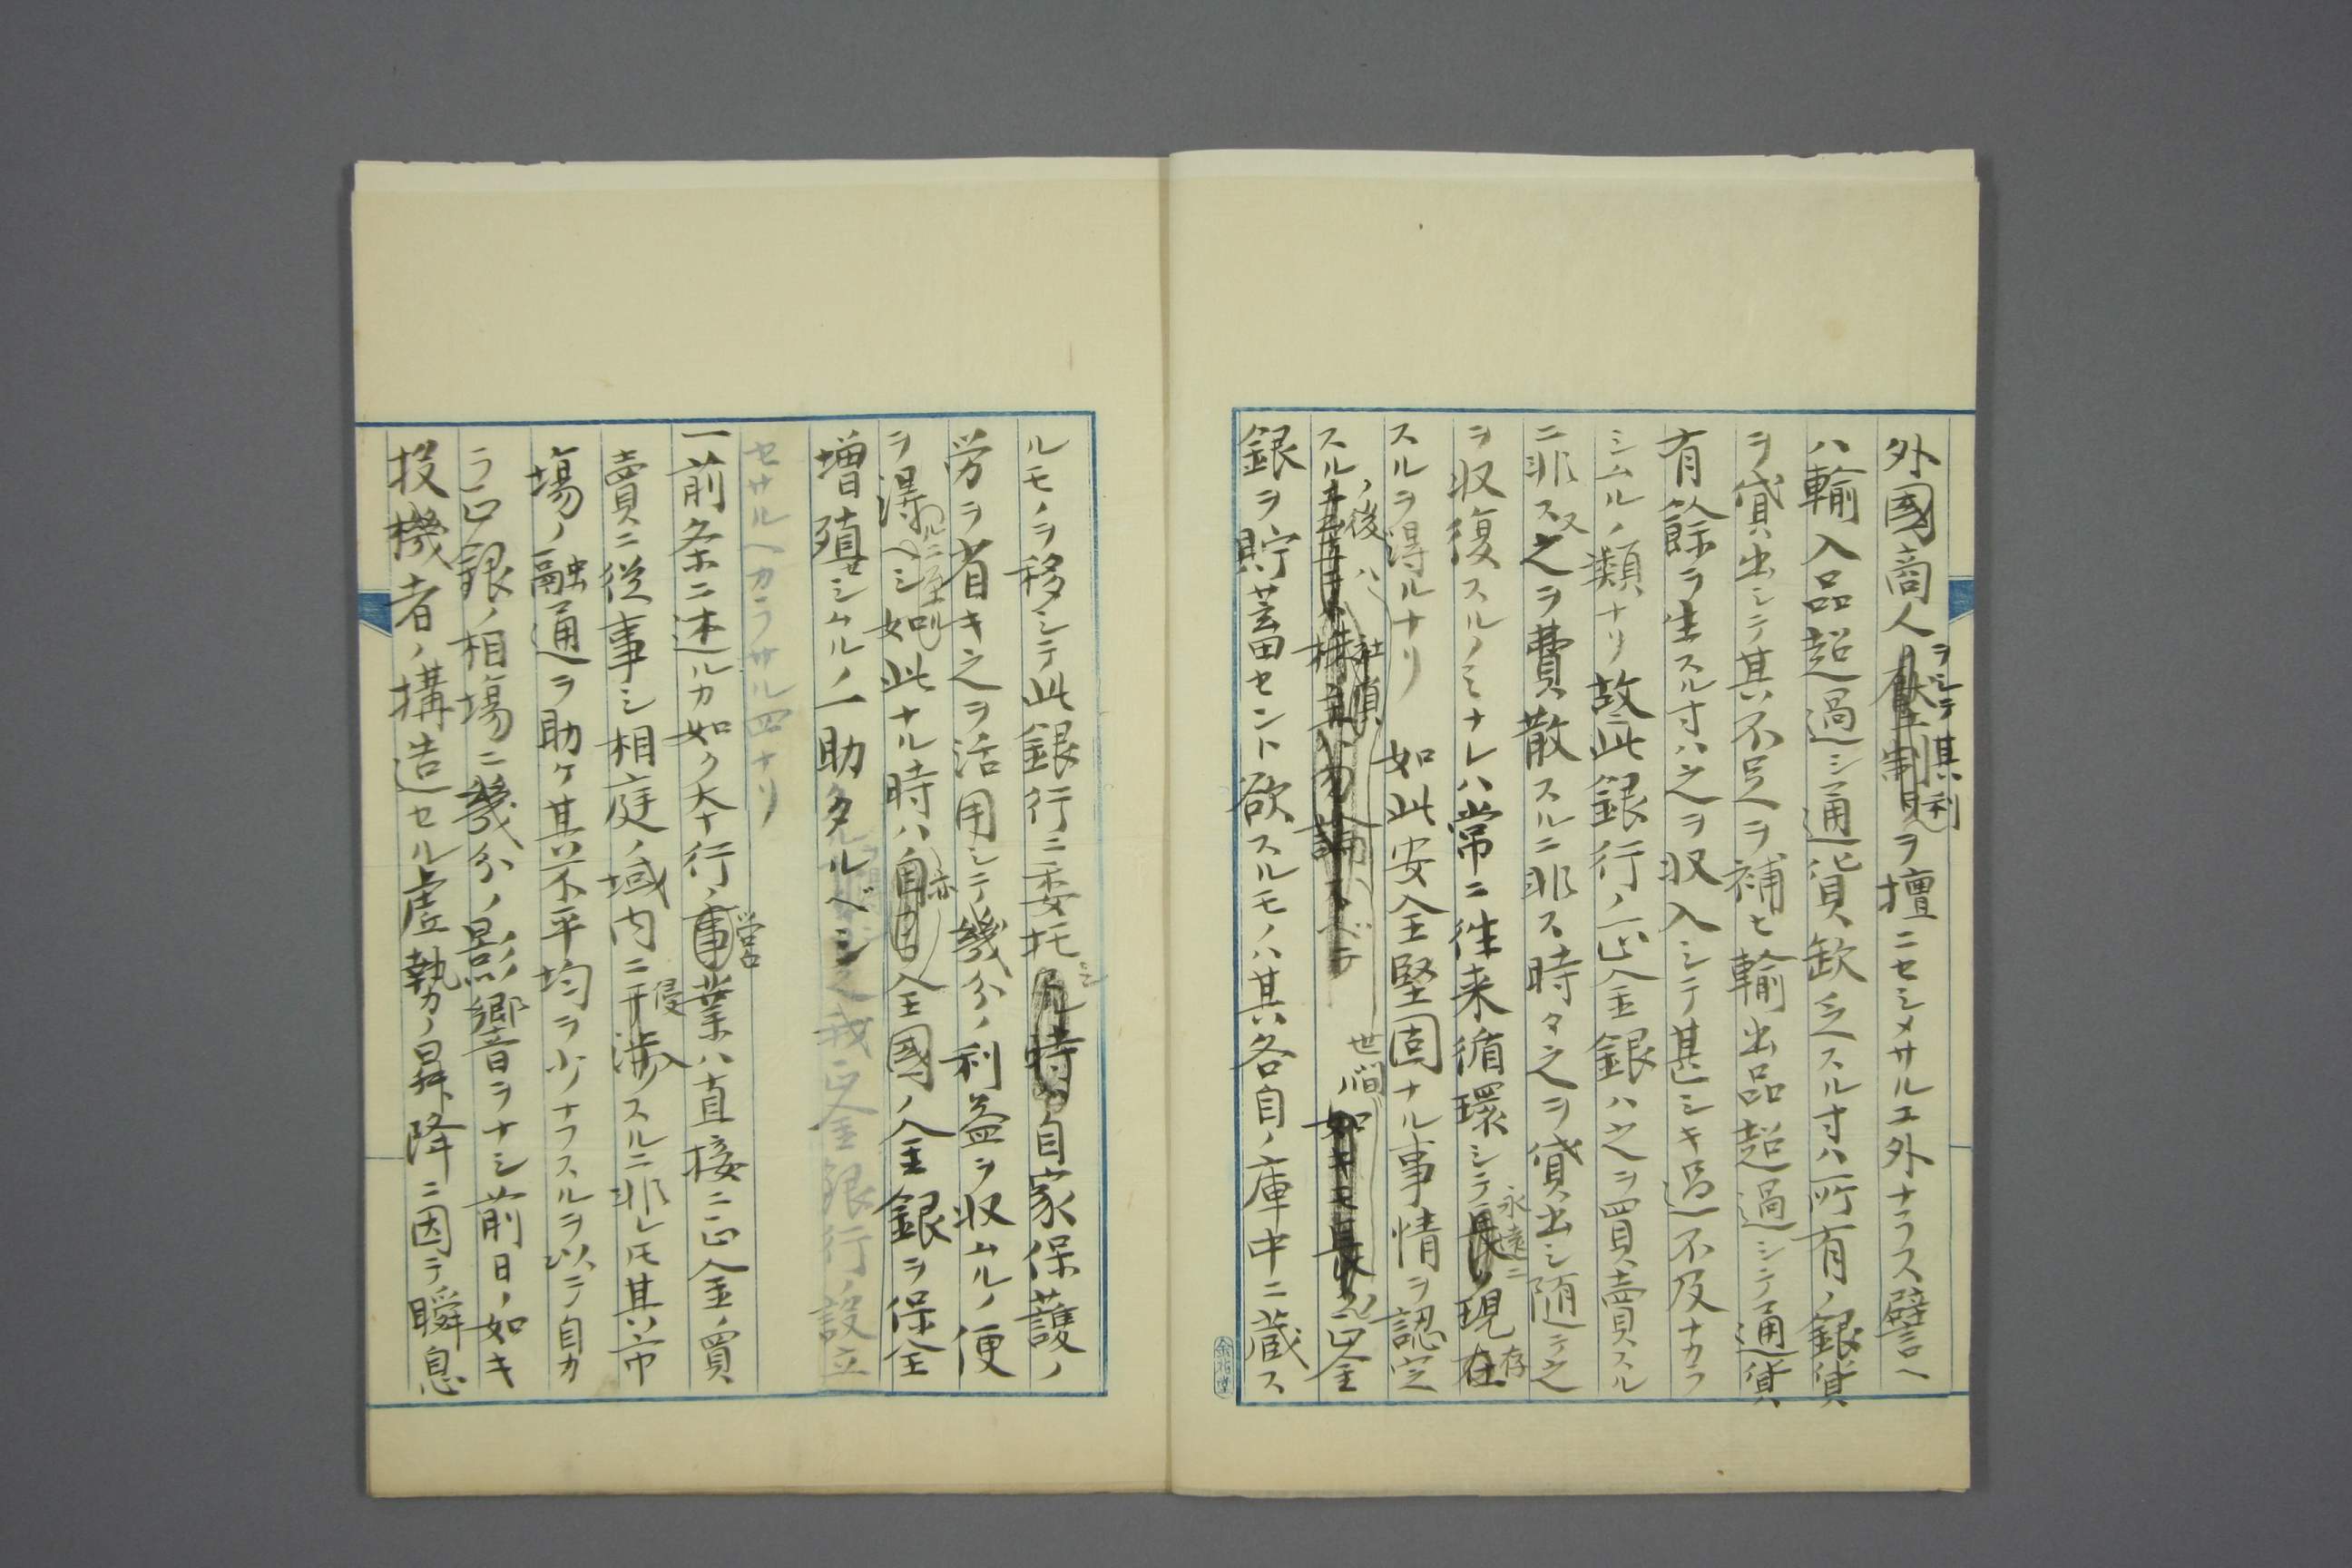 外國商人ヲシテ其利ヲ擅ニセシメサルニ外ナラス譬ヘ
ハ輸入品超過シ通貨欽乏スル寸ハ所有ノ銀貨
ヲ貸出シテ其不足ヲ補ヒ輸出品超過シテ通貨
有餘ヲ生スル寸ハ之ヲ収入シテ甚シキ過不及ナカラ
シムルノ類ナリ故ニ此銀行ノ正金銀ハ之ヲ買賣スル
ニ非ス又之ヲ費散スルニ非ス時々之ヲ貸出シ随テ之
ヲ収復スルノミナレハ常ニ徃来循環シテ永遠ニ現存
スルヲ得ルナリ 如此安全堅固ナル事情ヲ認定
スルノ後ハ 世間ノ正金
銀ヲ貯蓄セント欲スルモノハ其各自ノ庫中ニ蔵ス
ルモノヲ移シテ此銀行ニ委托シ自家保護ノ
労ヲ省キ之ヲ活用シテ幾分ノ利益ヲ収ムルノ便
ヲ得ヘシ如此ナル時ハ亦全國ノ金銀ヲ保全
増殖セシムルノ一助タルベシ
セサルヘカラサル四ナリ
一前条ニ述ルカ如ク本行ノ営業ハ直接ニ正金ノ買
賣ニ従事シ相庭ノ域内ニ干渉スルニ非レ𪜈其市
場ノ融通ヲ助ケ其不平均ヲ少ナフスルヲ以テ自カ
ラ正銀ノ相場ニ幾分ノ影響ヲナシ前日ノ如キ
投機者ノ構造セル虚勢ノ昇降ニ因テ瞬息